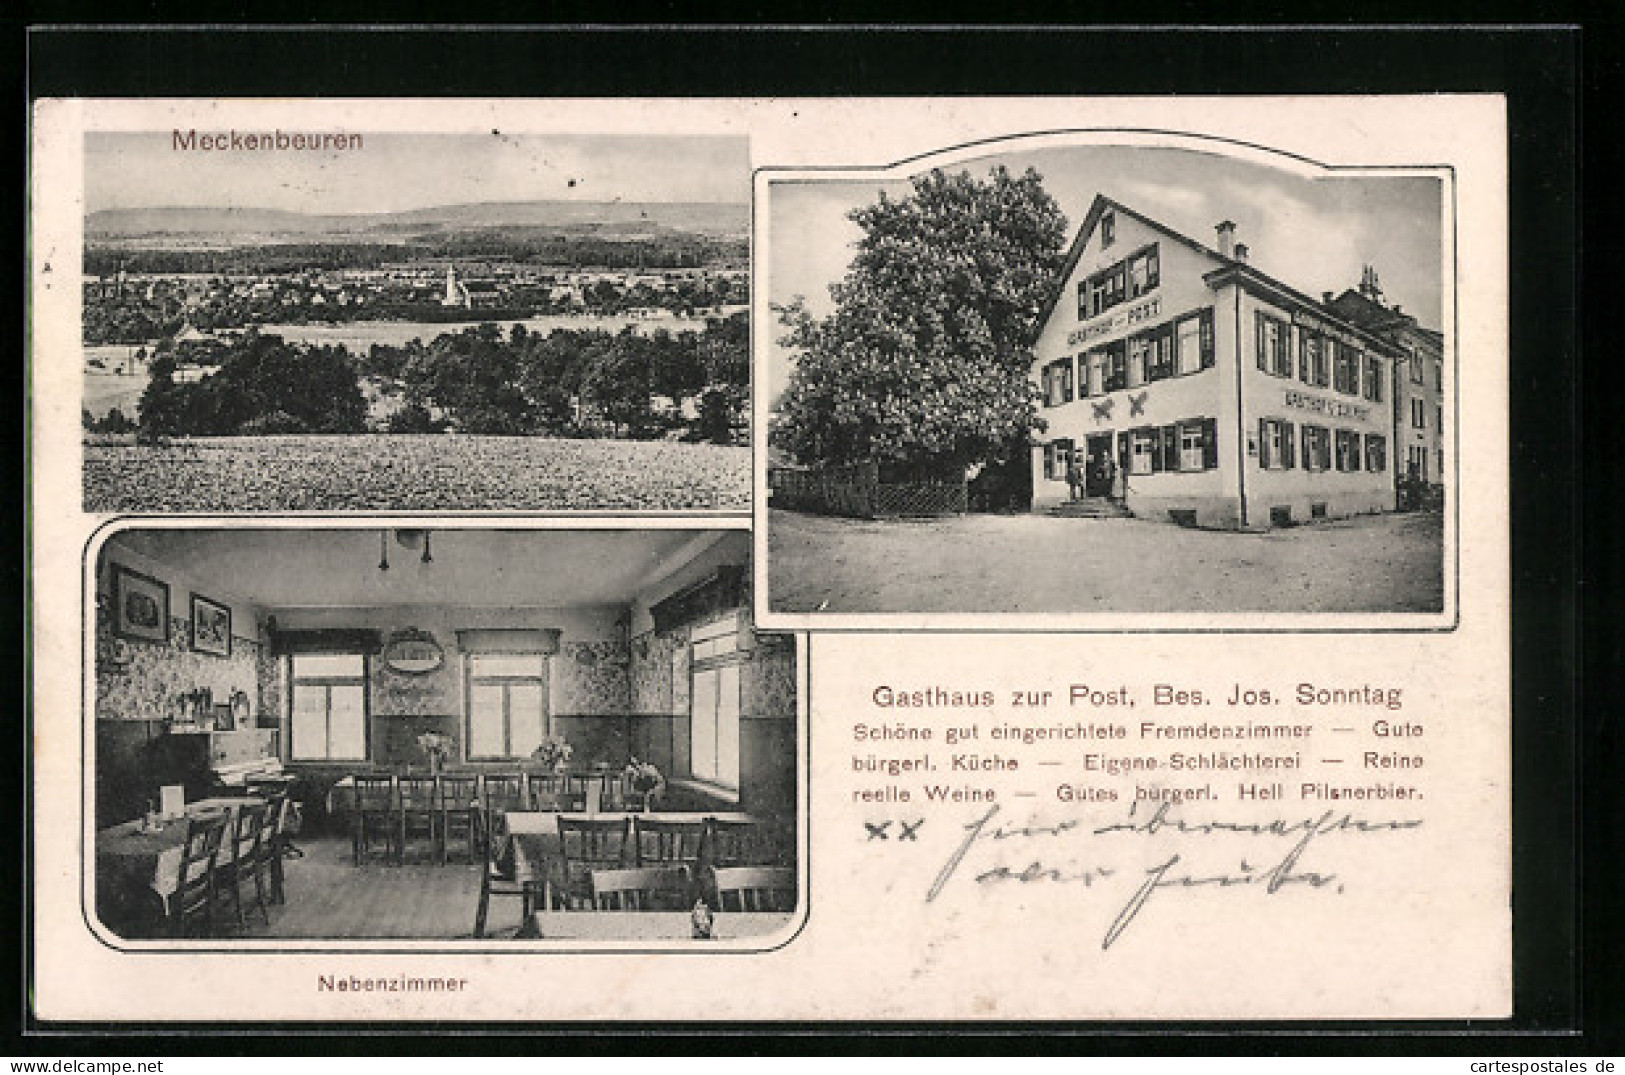 Meckenbeuren
GASTHOF ZUR POST
GASTHOF Z. POST
Gasthaus zur Post, Bes. Jos. Sonntag
Schöne gut eingerichtete Fremdenzimmer — Gute
bürgerl. Küche — Eigene Schlächterei — Reine
reelle Weine — Gutes bürgerl. Hell Pilsnerbier.
xx hier übernachten
wir heute.
Nebenzimmer
cartespostales de